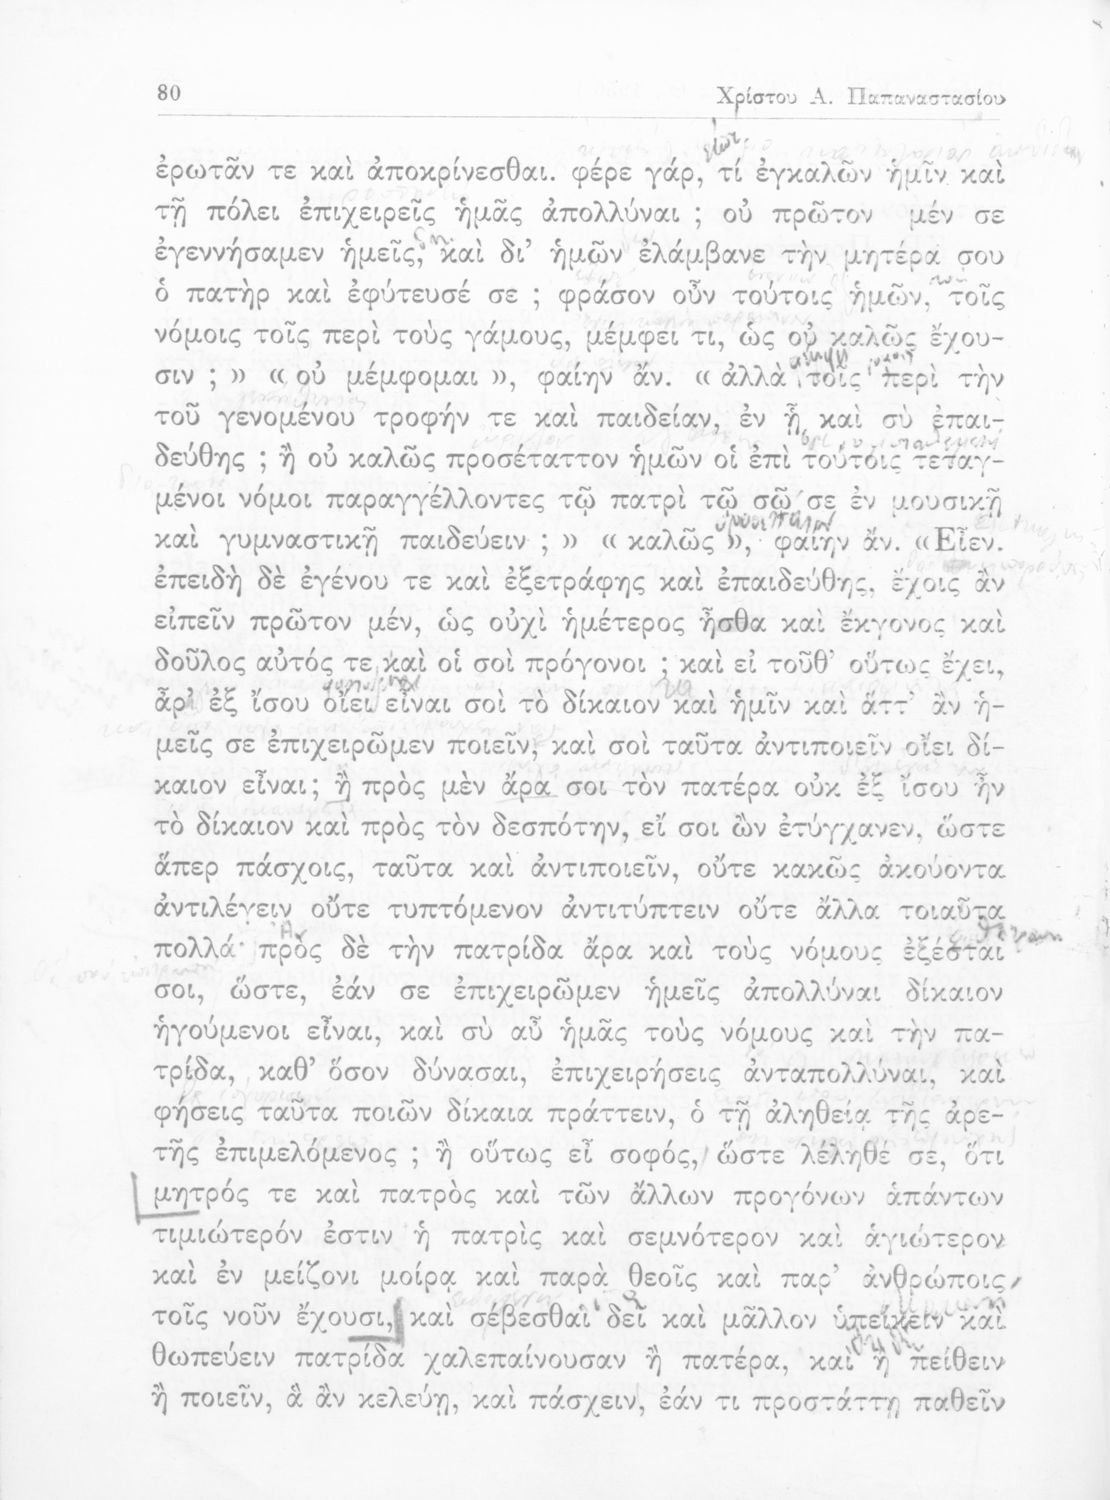 80 Χρίστου Α. Παπαναστασίου
ἐρωτᾶν τε καὶ ἀποκρίνεσθαι. φέρε γάρ, τί ἐγκαλῶν ἡμῖν καὶ
τῇ πόλει ἐπιχειρεῖς ἡμᾶς ἀπολλύναι ; οὐ πρῶτον μέν σε
ἐγεννήσαμεν ἡμεῖς, καὶ δι’ ἡμῶν ἐλάμβανε τὴν μητέρα σου
ὁ πατὴρ καὶ ἐφύτευσέ σε ; φράσον οὖν τούτοις ἡμῶν, τοῖς
νόμοις τοῖς περὶ τοὺς γάμους, μέμφει τι, ὡς οὐ καλῶς ἔχου-
σιν ; » « οὐ μέμφομαι », φαίην ἄν. « ἀλλὰ τοῖς περὶ τὴν
τοῦ γενομένου τροφήν τε καὶ παιδείαν, ἐν ᾗ καὶ σὺ ἐπαι-
δεύθης ; ἢ οὐ καλῶς προσέταττον ἡμῶν οἱ ἐπὶ τούτοις τεταγ-
μένοι νόμοι παραγγέλλοντες τῷ πατρὶ τῷ σῷ σε ἐν μουσικῇ
καὶ γυμναστικῇ παιδεύειν ; » « καλῶς », φαίην ἄν. «Εἶεν.
ἐπειδὴ δὲ ἐγένου τε καὶ ἐξετράφης καὶ ἐπαιδεύθης, ἔχοις ἂν
εἰπεῖν πρῶτον μέν, ὡς οὐχὶ ἡμέτερος ἦσθα καὶ ἔκγονος καὶ
δοῦλος αὐτός τε καὶ οἱ σοὶ πρόγονοι ; καὶ εἰ τοῦθ’ οὕτως ἔχει,
ἆρ’ ἐξ ἴσου οἴει εἶναι σοὶ τὸ δίκαιον καὶ ἡμῖν καὶ ἅττ’ ἂν ἡ-
μεῖς σε ἐπιχειρῶμεν ποιεῖν, καὶ σοὶ ταῦτα ἀντιποιεῖν οἴει δί-
καιον εἶναι; ἢ πρὸς μὲν ἄρα σοι τὸν πατέρα οὐκ ἐξ ἴσου ἦν
τὸ δίκαιον καὶ πρὸς τὸν δεσπότην, εἴ σοι ὢν ἐτύγχανεν, ὥστε
ἅπερ πάσχοις, ταῦτα καὶ ἀντιποιεῖν, οὔτε κακῶς ἀκούοντα
ἀντιλέγειν οὔτε τυπτόμενον ἀντιτύπτειν οὔτε ἄλλα τοιαῦτα
πολλά· πρὸς δὲ τὴν πατρίδα ἄρα καὶ τοὺς νόμους ἐξέσται
σοι, ὥστε, ἐάν σε ἐπιχειρῶμεν ἡμεῖς ἀπολλύναι δίκαιον
ἡγούμενοι εἶναι, καὶ σὺ αὖ ἡμᾶς τοὺς νόμους καὶ τὴν πα-
τρίδα, καθ’ ὅσον δύνασαι, ἐπιχειρήσεις ἀνταπολλύναι, καὶ
φήσεις ταῦτα ποιῶν δίκαια πράττειν, ὁ τῇ ἀληθείᾳ τῆς ἀρε-
τῆς ἐπιμελόμενος ; ἢ οὕτως εἶ σοφός, ὥστε λέληθέ σε, ὅτι
μητρός τε καὶ πατρὸς καὶ τῶν ἄλλων προγόνων ἁπάντων
τιμιώτερόν ἐστιν ἡ πατρὶς καὶ σεμνότερον καὶ ἁγιώτερον
καὶ ἐν μείζονι μοίρᾳ καὶ παρὰ θεοῖς καὶ παρ’ ἀνθρώποις
τοῖς νοῦν ἔχουσι, καὶ σέβεσθαι δεῖ καὶ μᾶλλον ὑπείκειν καὶ
θωπεύειν πατρίδα χαλεπαίνουσαν ἢ πατέρα, καὶ ἢ πείθειν
ἢ ποιεῖν, ἃ ἂν κελεύῃ, καὶ πάσχειν, ἐάν τι προστάττῃ παθεῖν